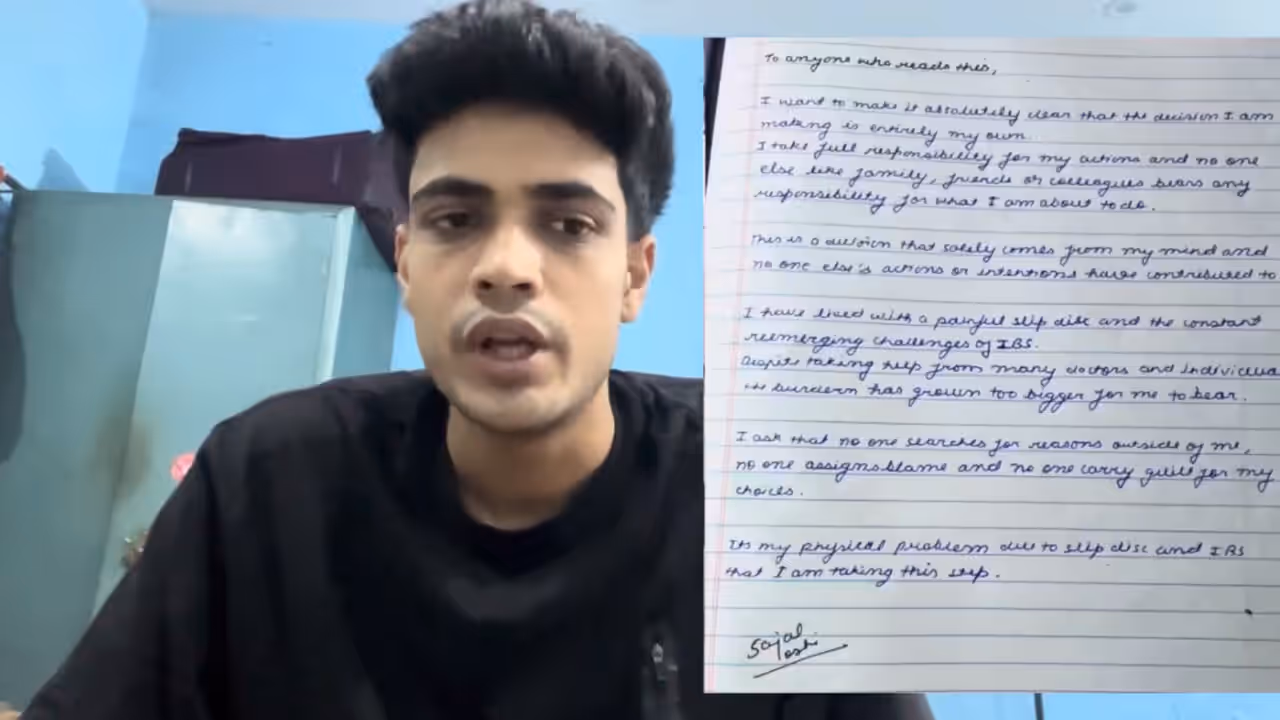 To anyone who reads this,
I want to make it absolutely clear that the decision I am
making is entirely my own.
I take full responsibility for my actions and no one
else like family, friends or colleagues bears any
responsibility for what I am about to do.
This is a decision that solely comes from my mind and
no one else's actions or intentions have contributed to
I have lived with a painful slip disc and the constant
reemerging challenges of IBS.
Despite taking help from many doctors and individua
the burdern has grown too bigger for me to bear.
I ask that no one searches for reasons outside of me,
no one assigns blame and no one carry guilt for my
choices.
Its my physical problem due to slip disc and IBS
that I am taking this step.
Sajal